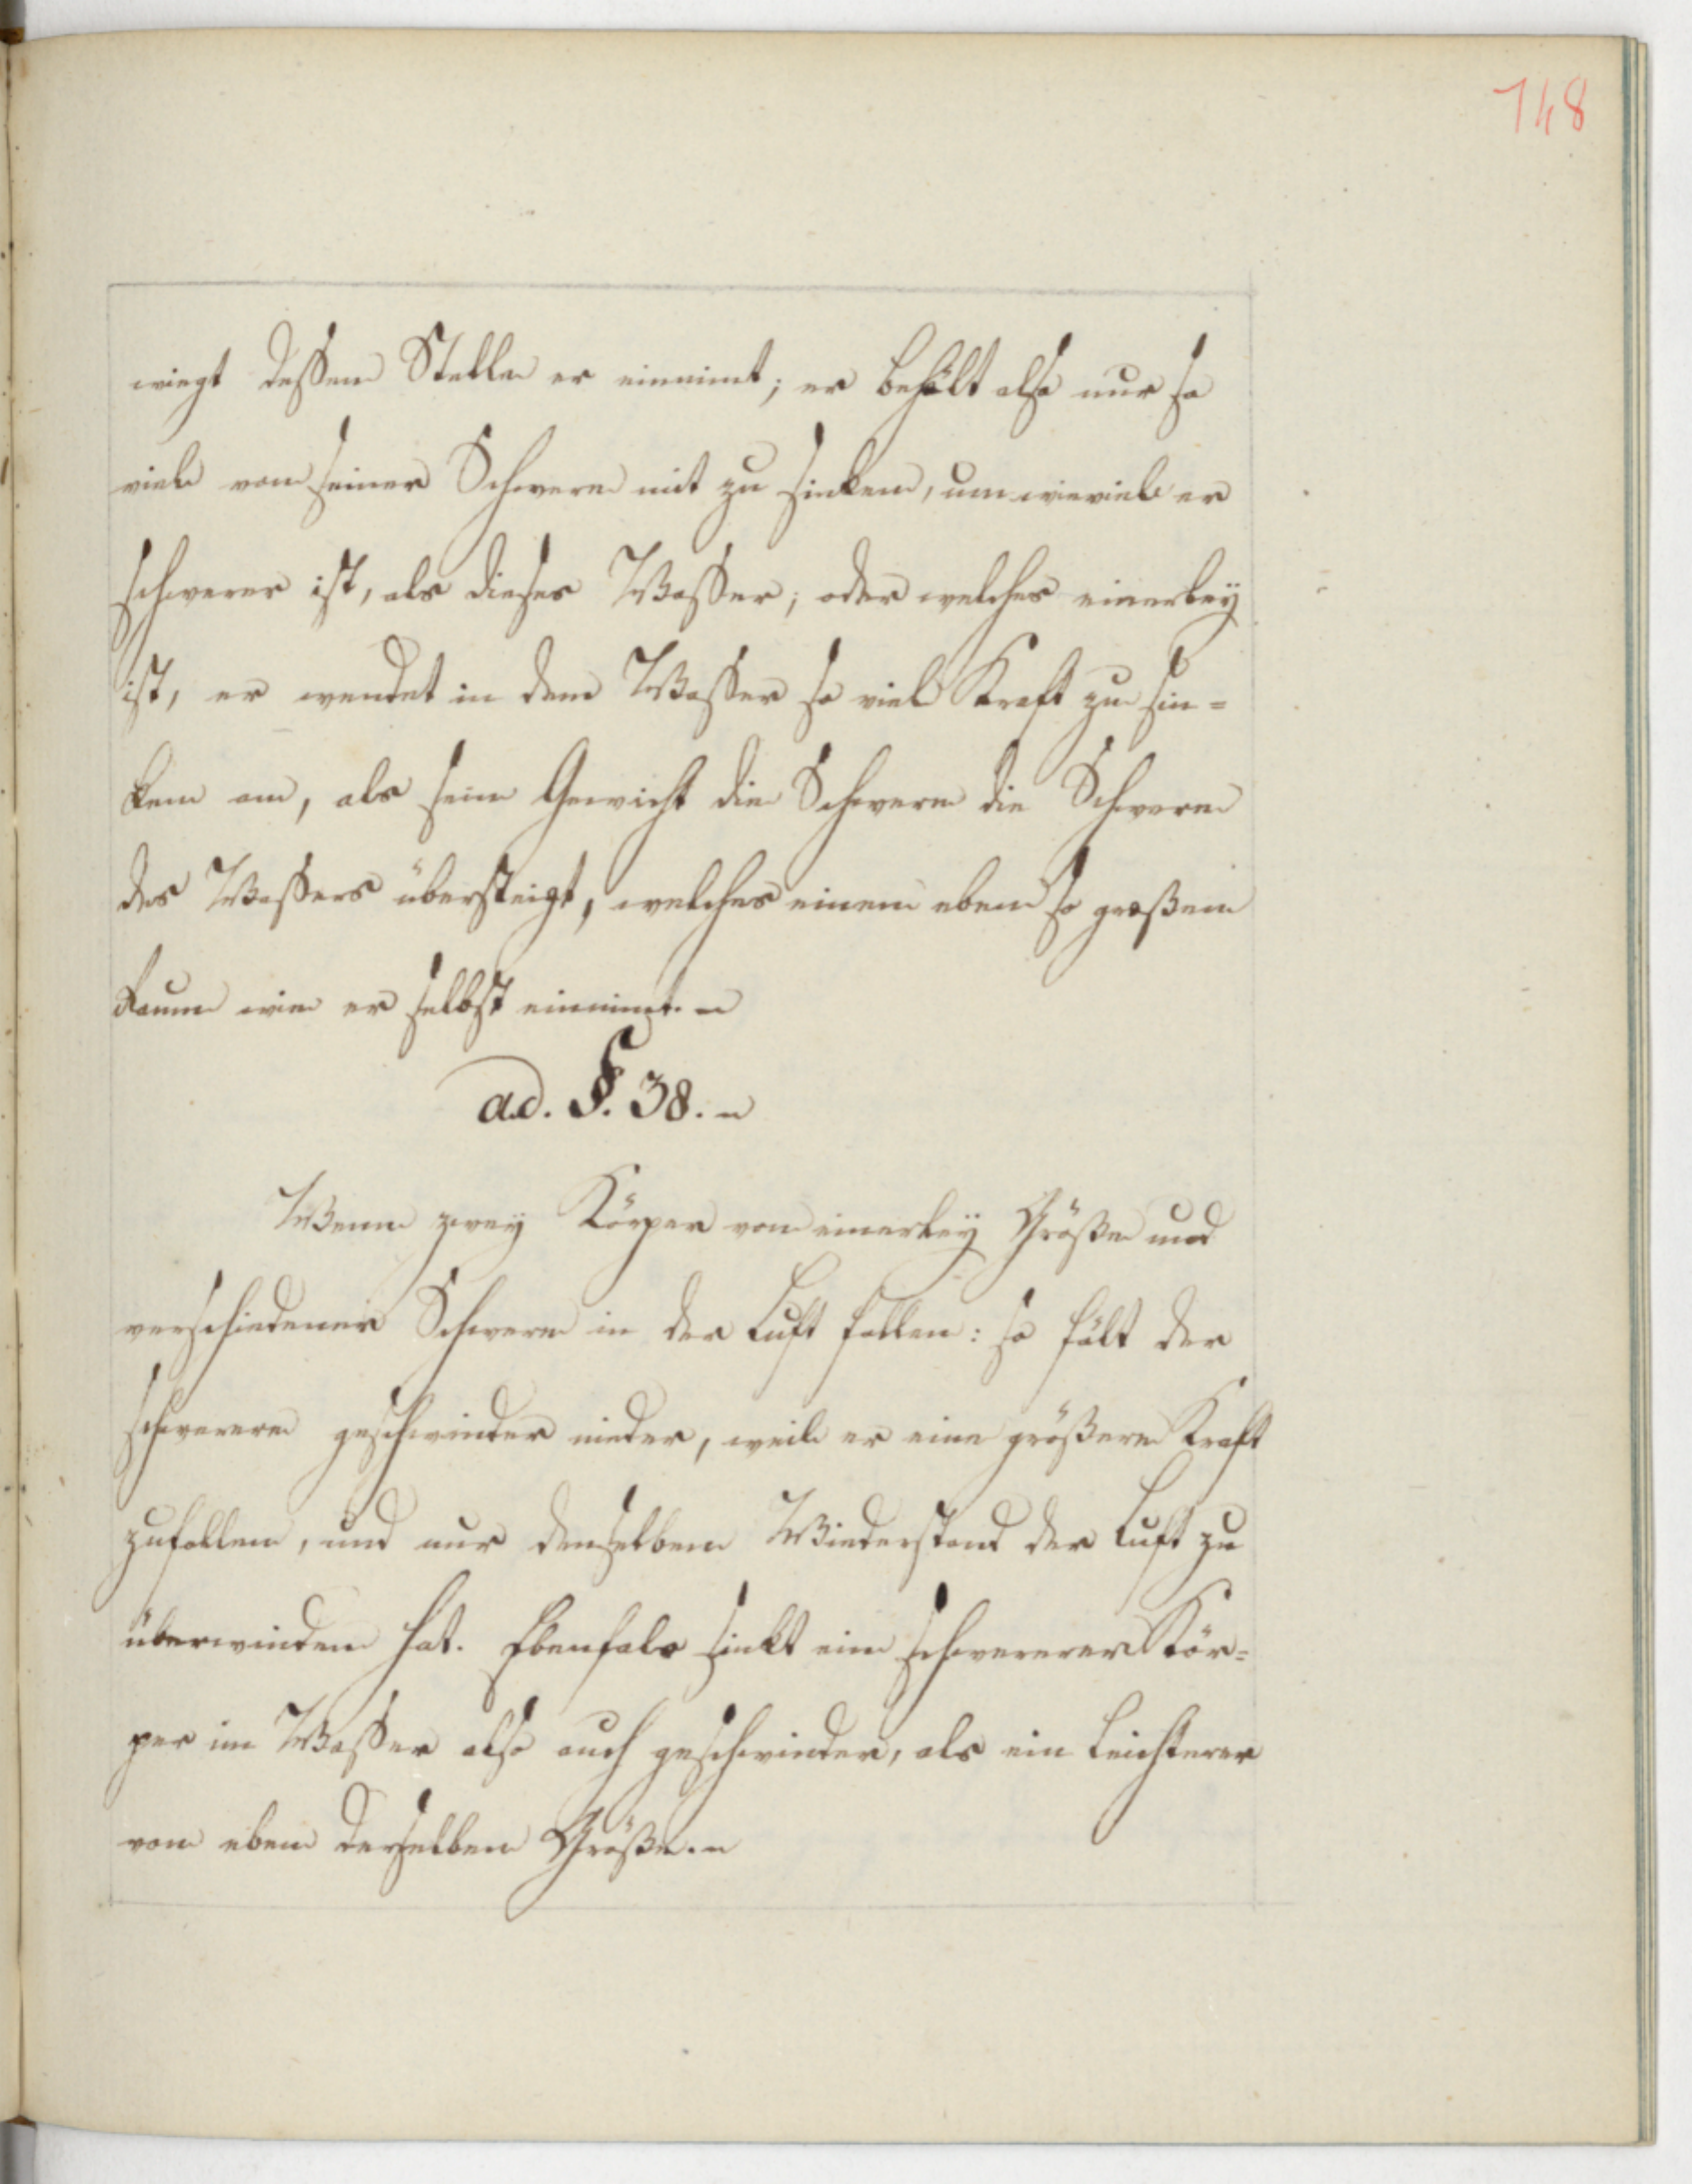 148
wiegt dessen Stelle er einnimt; er behält also nur so
viele von seiner Schwere mit zu sinken, um wieviele er
schwerer ist, als dieses Wasser; oder welches einerley
ist, er wendet in dem Wasser so viel Kraft zu sin=
ken an, als sein Gewicht die Schwere die Schwere
des Wassers übersteigt, welches einen eben so großen
Raum wie er selbst einnimt.
ad. §. 38.
Wenn zwey Körper von einerley Größe und
verschiedener Schwere in der Luft fallen: so fält der
schwerere geschwinder nieder, weil er eine größere Kraft
zufallen, und nur denselben Wiederstand der Luft zu
überwinden hat. Ebenfals sinkt ein schwererer Kör=
per im Wasser also auch geschwinder, als ein leichterer
von eben derselben Größe.